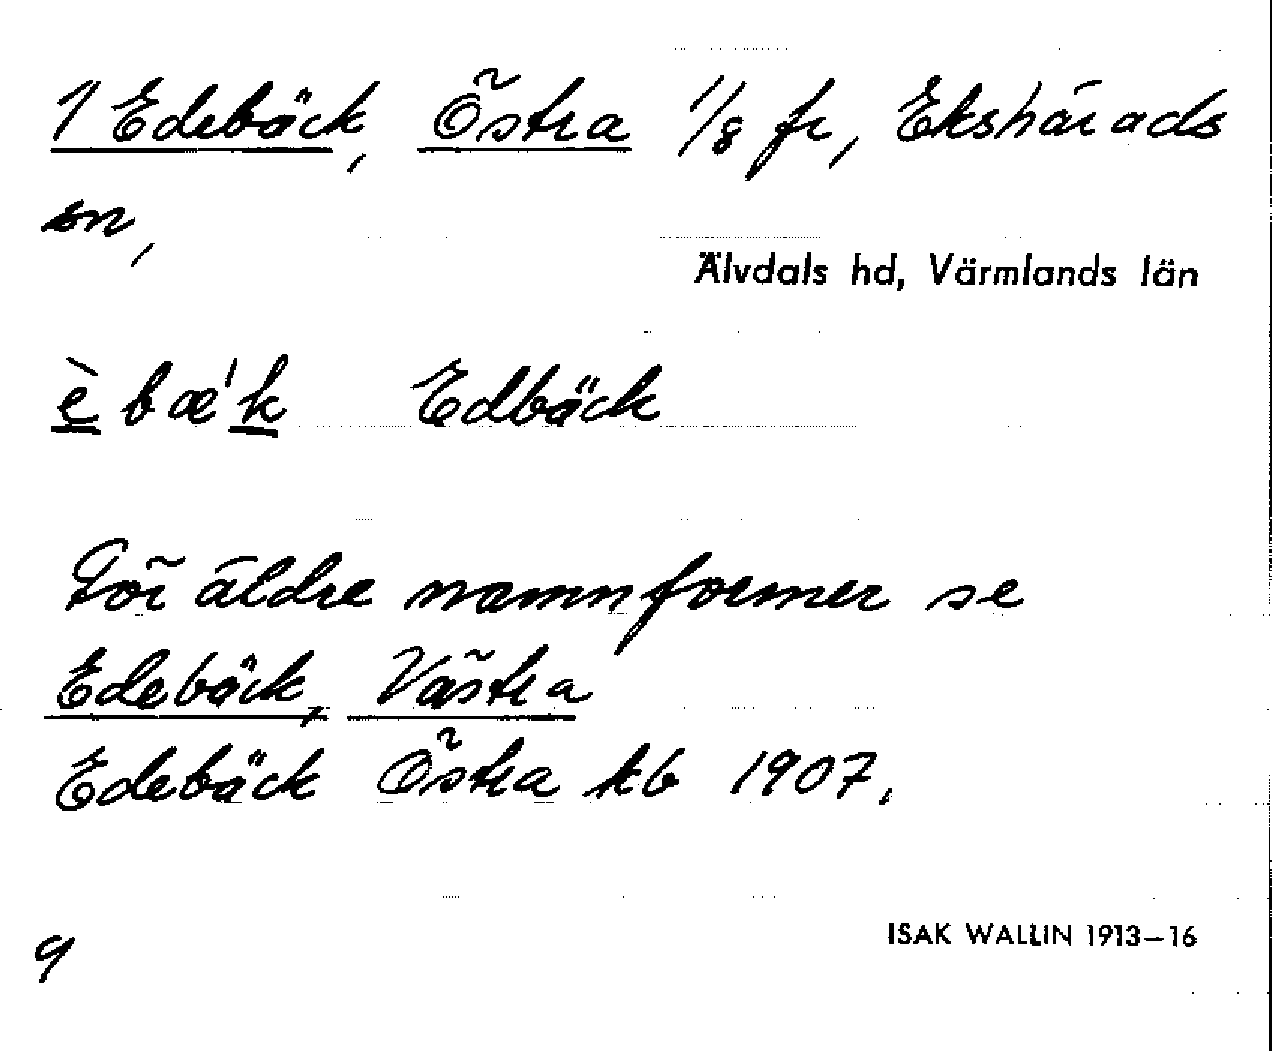 1 Edebäck, Östra 1/8 fr, Ekshärads
sn,
Älvdals hd, Värmlands län
è bæ'k Edbäck
För äldre namnformer se
Edebäck, Västra
Edebäck Östra kb 1907.
9
ISAK WALLIN 1913–16